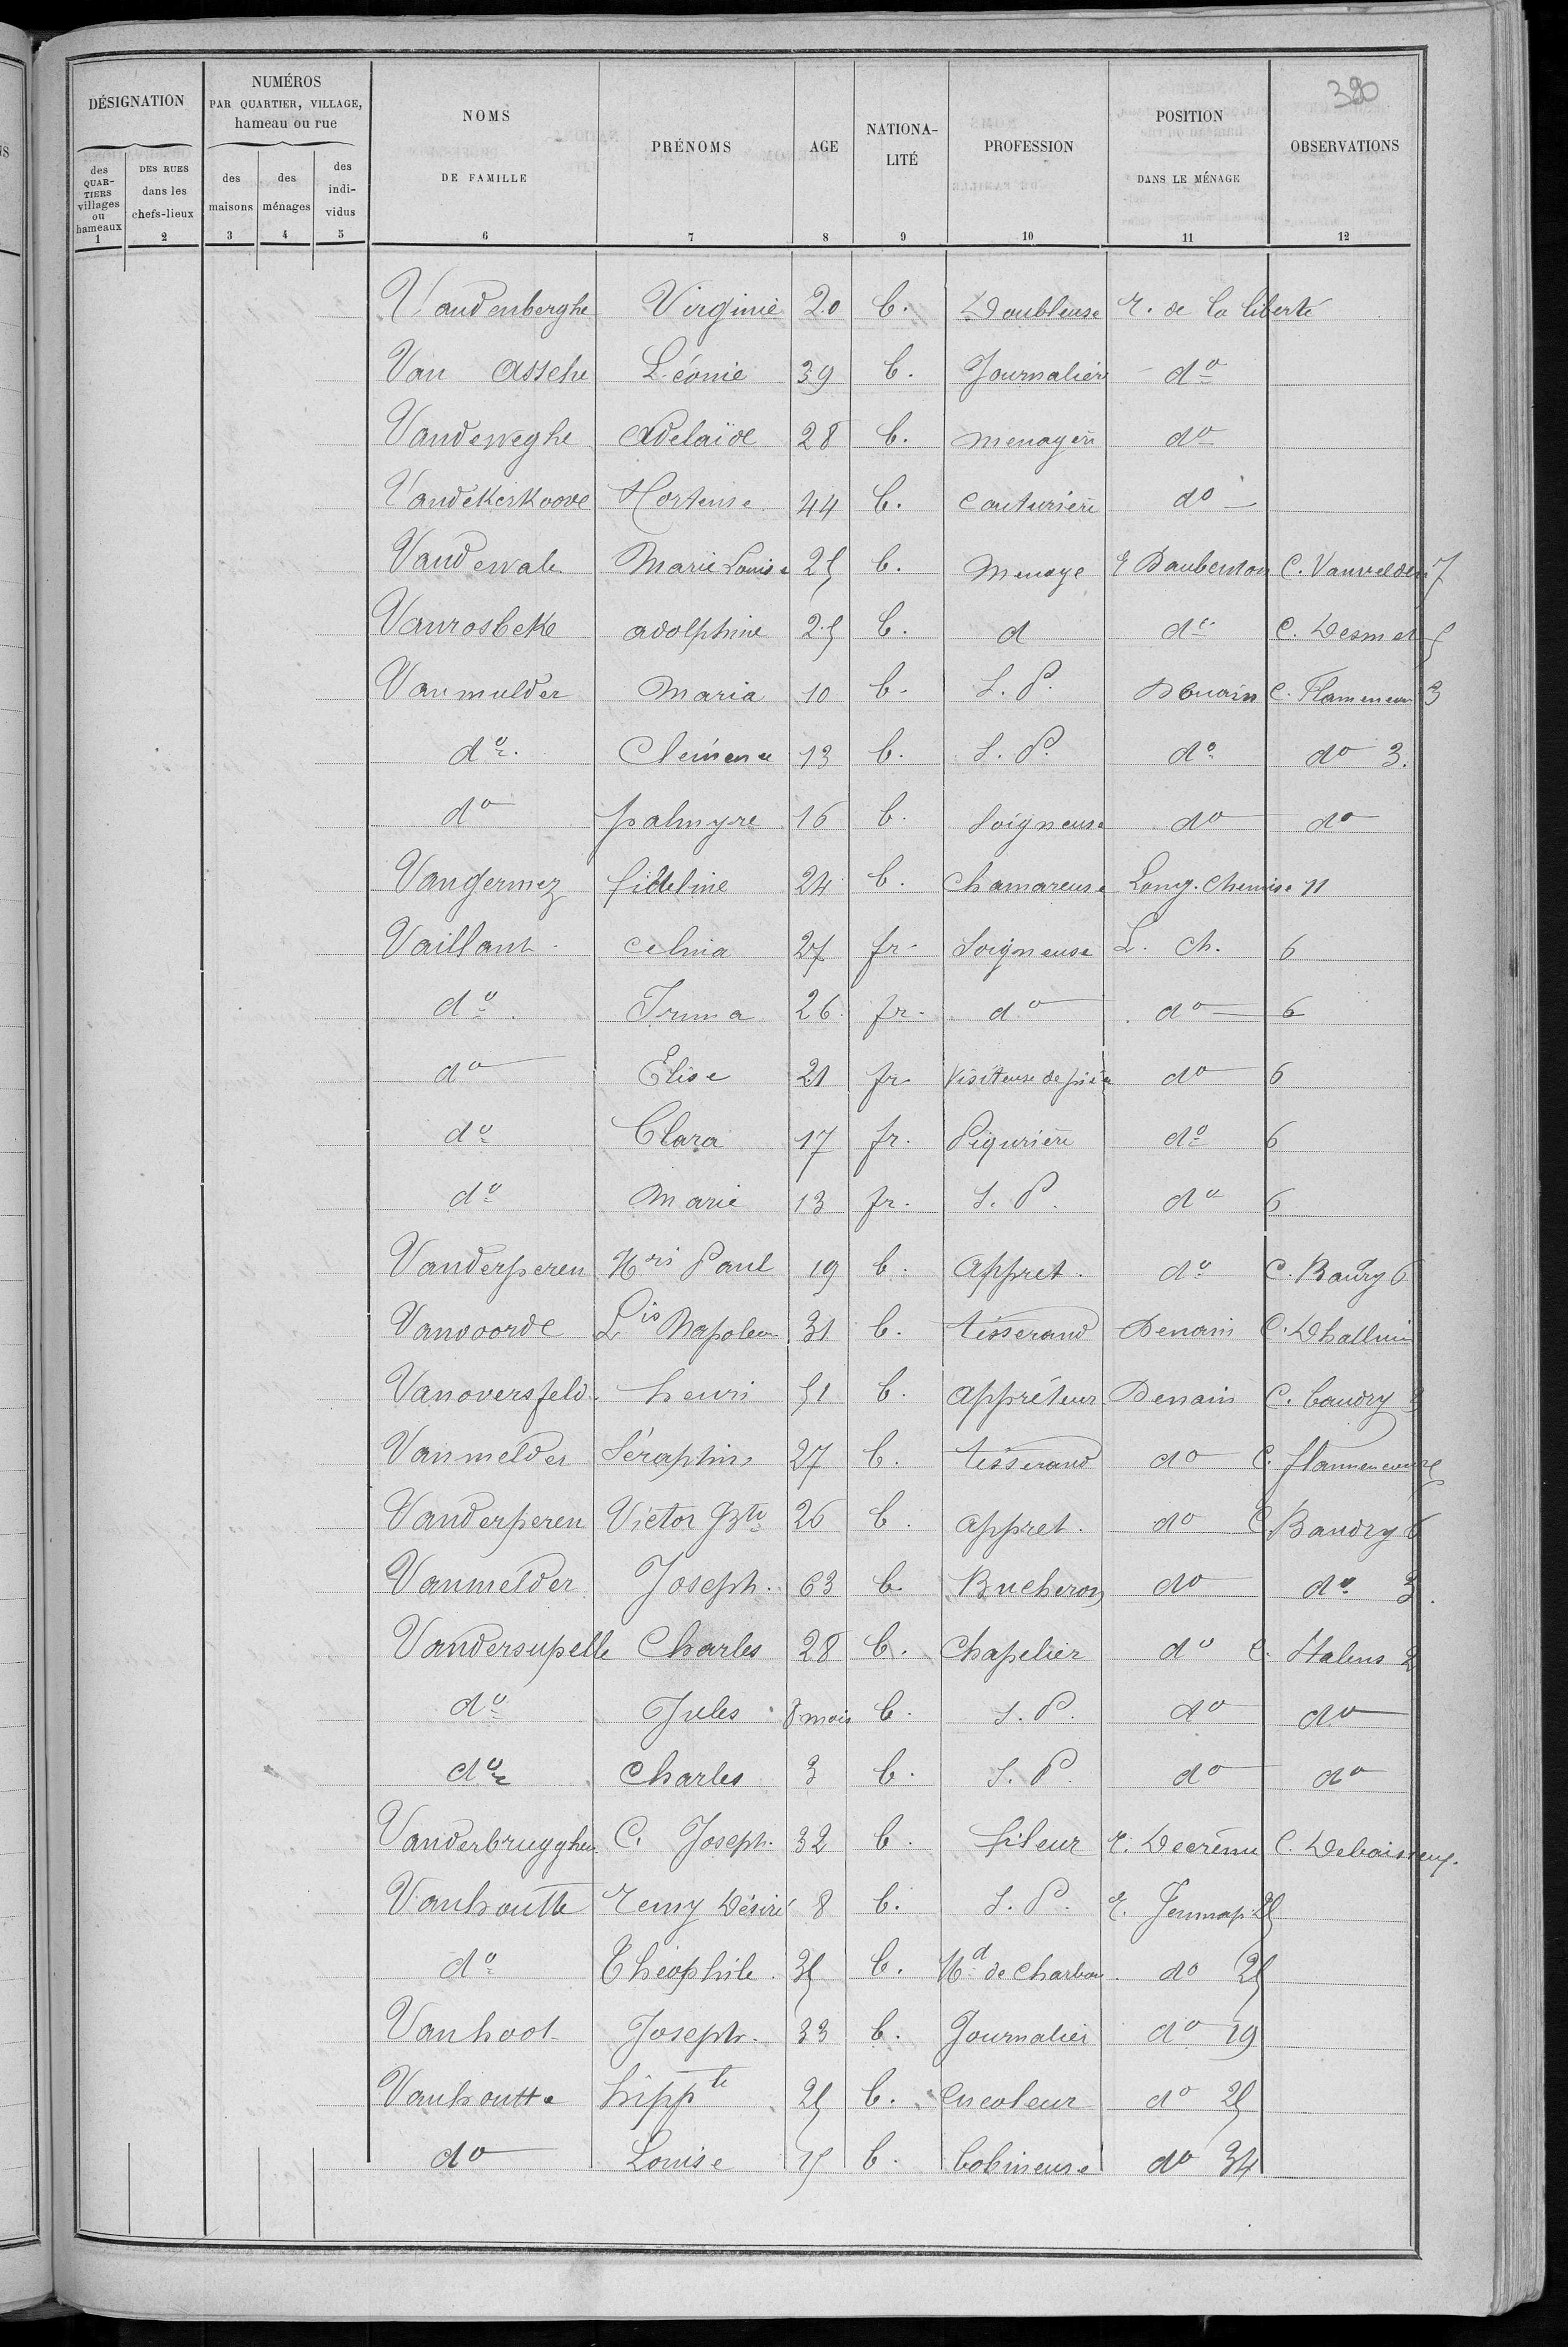 390
DÉSIGNATION
NUMÉROS PAR QUARTIER, VILLAGE, hameau ou rue
NOMS DE FAMILLE
PRÉNOMS
AGE
NATIONALITÉ
PROFESSION
POSITION DANS LE MÉNAGE
OBSERVATIONS
des QUARTIERS villages ou hameaux
DES RUES dans les chefs-lieux
des maisons
des ménages
des individus
1 2 3 4 5 6 7 8 9 10 11 12
Vandenberghe Virginie 20 b. Doubleuse r. de la liberté
Van Assche Léonie 39 b. Journalière do
Vandeweghe Adelaïde 28 b. menagère do
Vandekerkoove Hortense 44 b. Couturière do
Vandewale Marie Louise 25 b. Menage r Daubenton C. Vanvelden 7
Vanrosbeke adolphine 25 b. d do C. Desmet 5
Vanmulder Maria 10 b. S. P. Denain C. Flamencour 3
do Clémence 13 b. S. P. do do 3.
do palmyre 16 b. Soigneuse do do
Vangermez fideline 24 b. Chamareuse Long. Chemise 11
Vaillant celina 27 fr. Soigneuse L. Ch. 6
do Irma 26 fr. do do 6
do Elise 21 fr. Visiteuse de pièce do 6
do Clara 17 fr. Piqurière do 6
do Marie 13 fr. S. P. do 6
Vanderperen Hri Paul 19 b. Appret. do C. Baudry 6
Vanvoorde Lis Napoleon 31 b. tisserand Denain C. Dhalluin
Vanoversfeld henri 51 b. Appréteur Denain C. baudry 3
Vanmelder Séraphin 27 b. tisserand do C. flamencour
Vanderperen Victor Bte 26 b. appret. do C Baudry 6
Vanmelder Joseph. 63 b. Bucheron do do 3.
Vandersupelle Charles 28 b. Chapelier do C. Stalens 2
do Jules 8 mois b. S. P. do do
do Charles 3 b. S. P. do do
Vanderbrugghen C. Joseph. 32 b. fileur r. Decrême C. Deboisseux.
Vanhoutte Remy Désiré 8 b. S. P. r. Jemmap. 25
do Théophile 35 b. Md de Charbon do 25
Vanhoot Joseph. 33 b. Journalier do 19
Vanhoutte hippte 25 b. Encoleur do 25
do Louise 15 b. bobineuse do 34